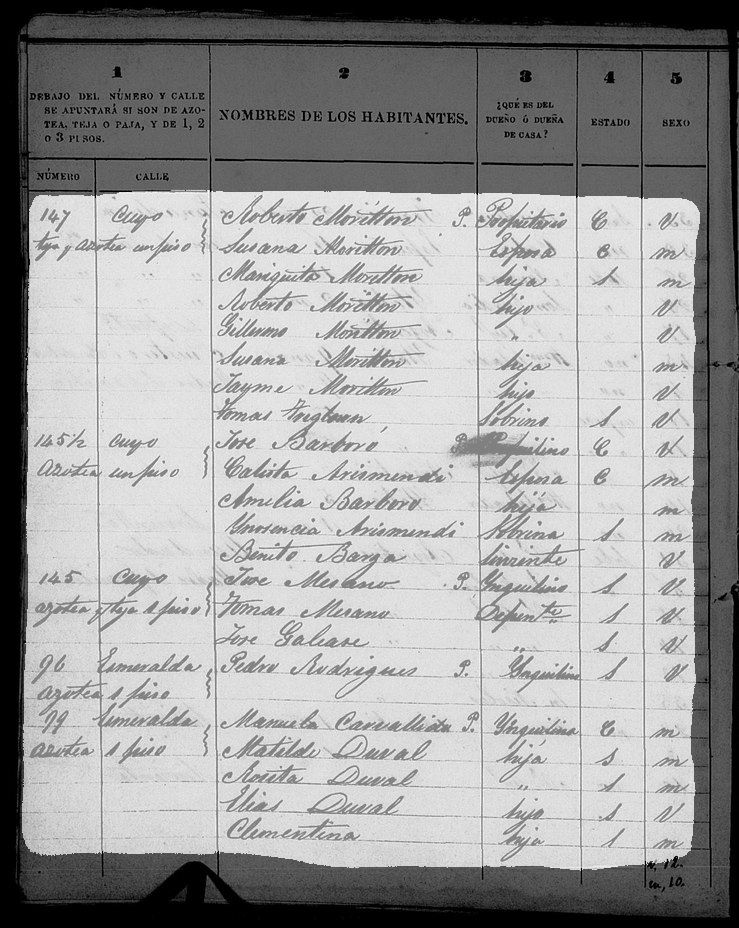 1 2 3 4 5
DEBAJO DEL NÚMERO Y CALLE
SE APUNTARÁ SI SON DE AZO-
TEA, TEJA O PAJA, Y DE 1, 2
O 3 PISOS.
NOMBRES DE LOS HABITANTES.
¿QUÉ ES DEL
DUEÑO Ó DUEÑA
DE CASA?
ESTADO
SEXO
NÚMERO CALLE
147 Cuyo Roberto Moritton P. Propietario C V
teja y azotea un piso Susana Moritton Esposa C m
Mariquita Moritton hija S m
Roberto Moritton hijo V
Gillermo Moritton " V
Susana Moritton hija m
Jayme Moritton hijo V
Tomas Sobrino S V
145½ Cuyo Jose Barboró P. Ynquilino C V
azotea un piso Calista Arismendi Esposa C m
Amelia Barboro hija m
Ynosencia Arismendi Sobrina S m
Binito Barga Sirviente V
145 Cuyo Jose Mesano P. Ynquilino S V
azotea y teja 1 piso Tomas Mesano Depente S V
Jose Galease " S V
96 Esmeralda Pedro Rodrigues P. Ynquilino S V
azotea 1 piso
99 Esmeralda Manuela Carvallido P. Ynquilina C m
azotea 1 piso Matilde Duval hija S m
Rosita Duval " S m
Elias Duval hijo S V
Clementina hija S m
v, 12.
m, 10.